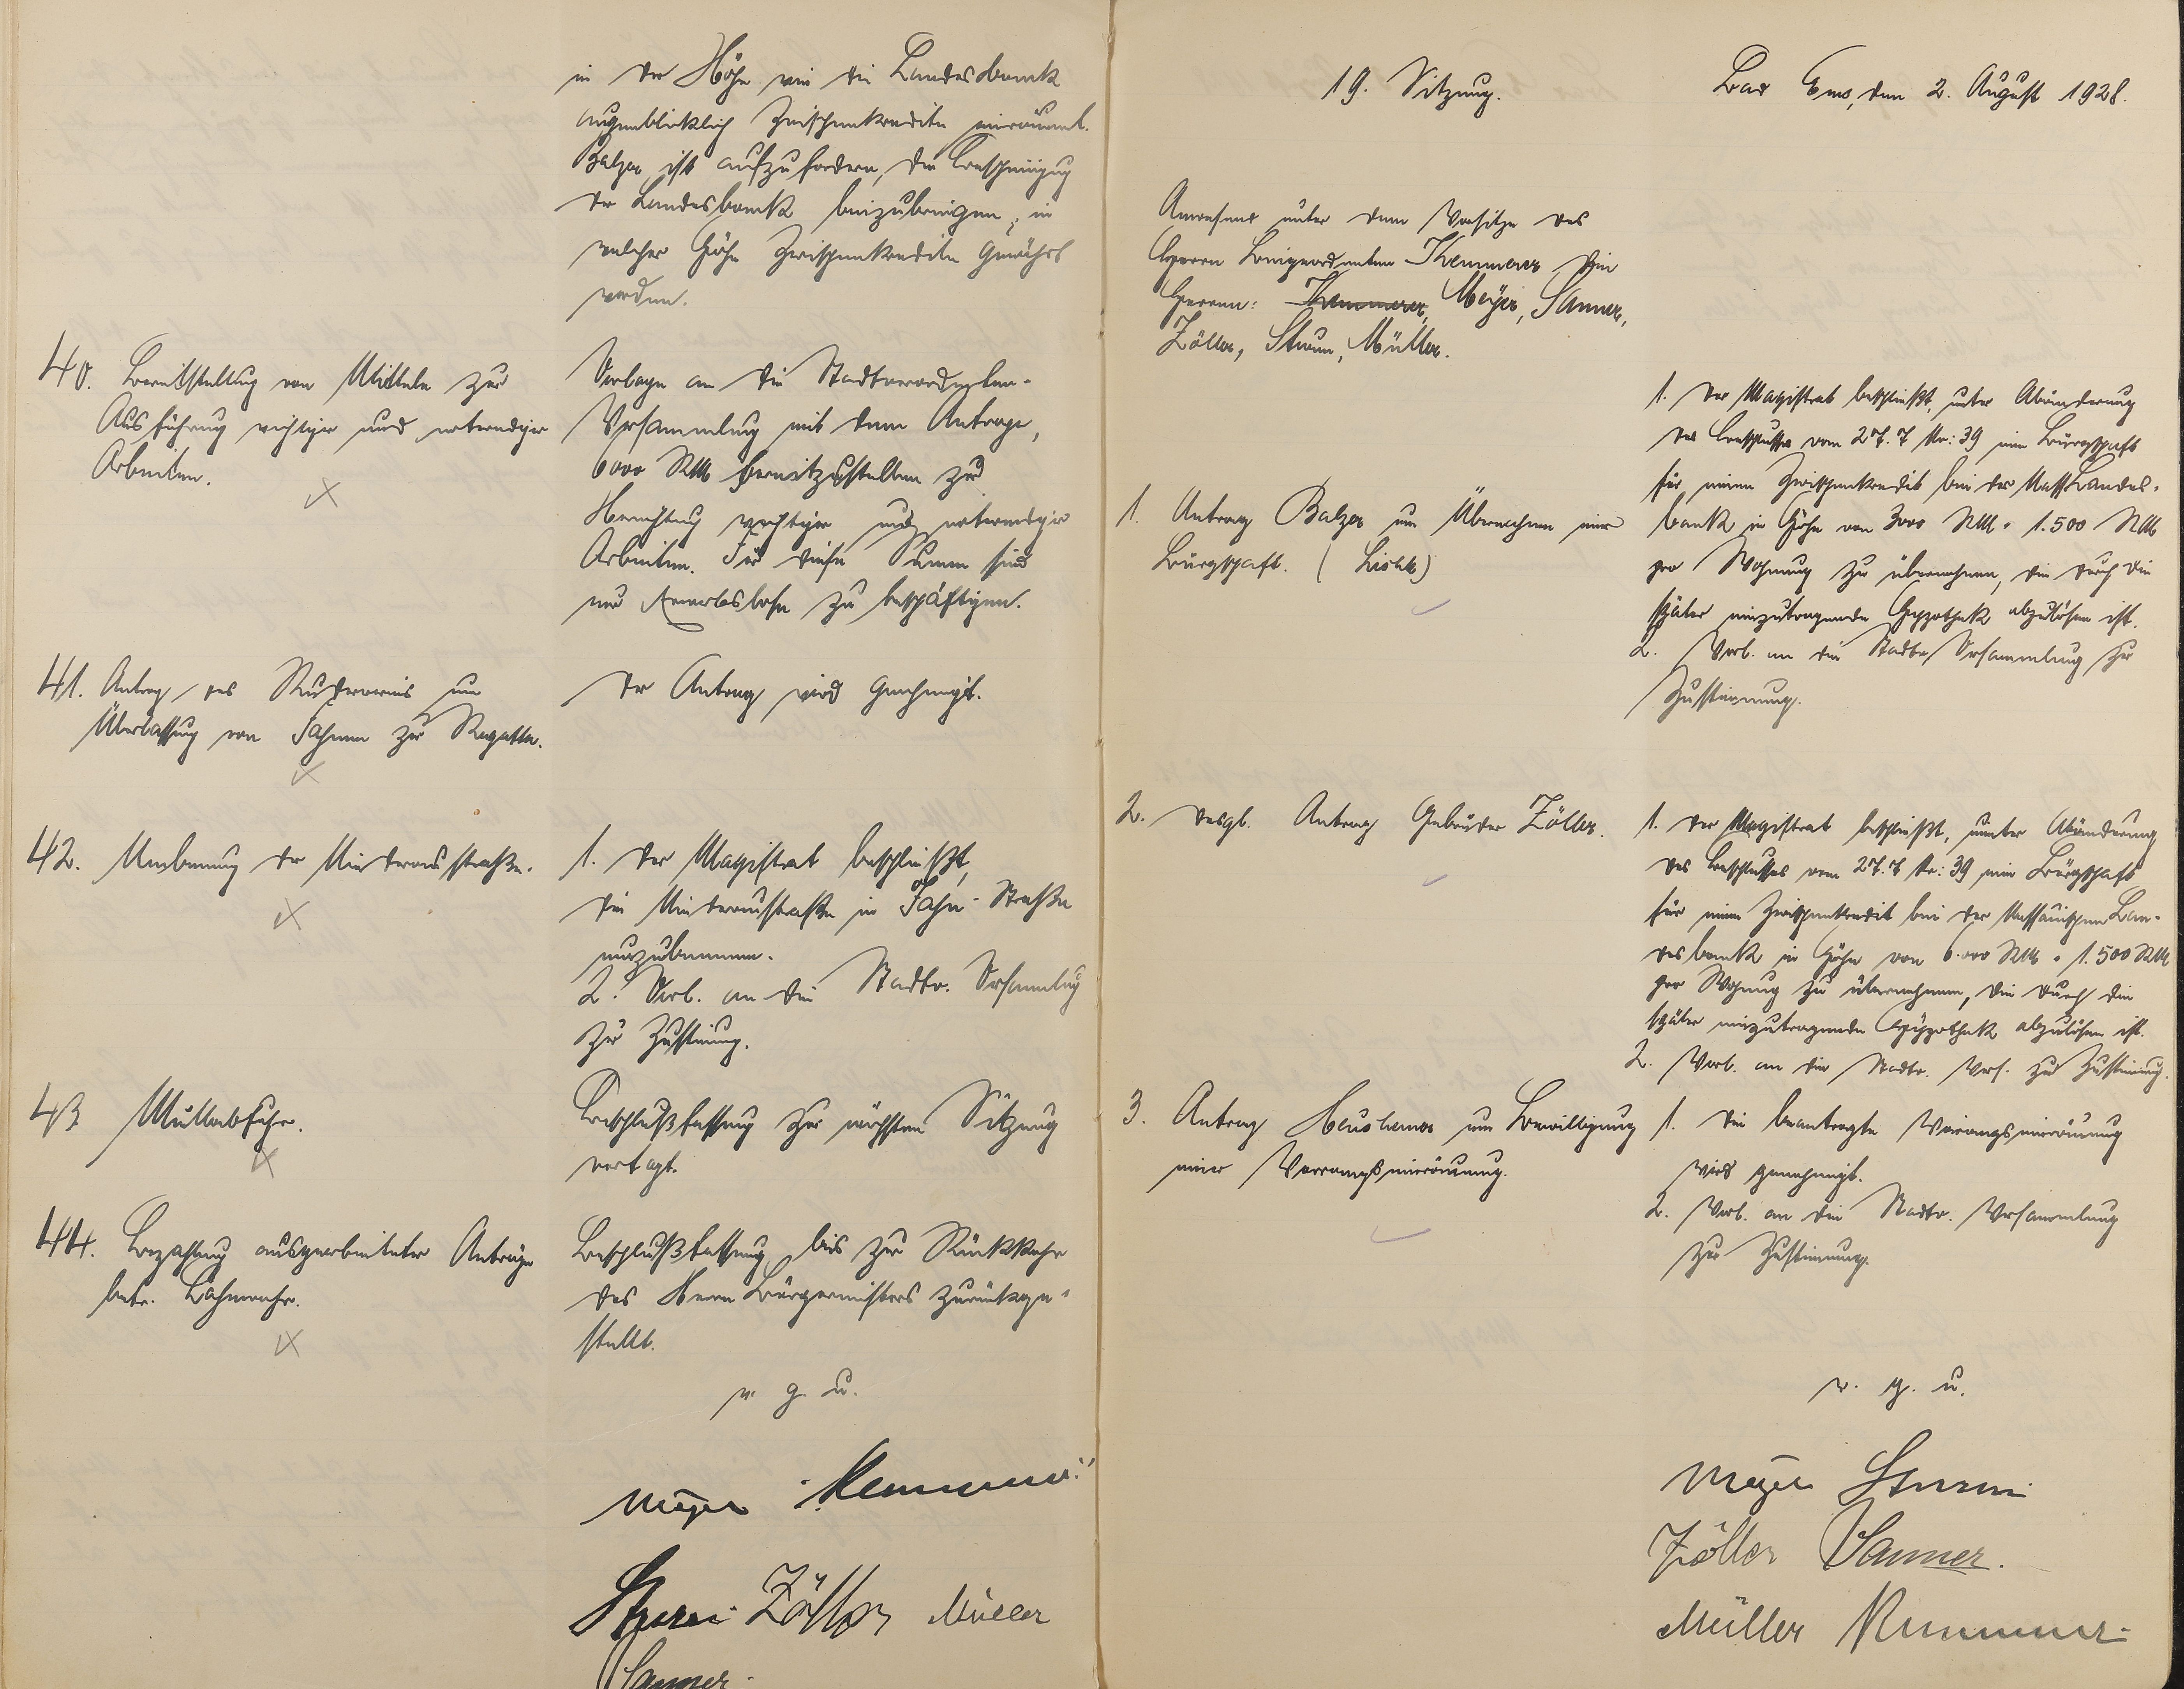 in der Höhe wie die Landesbank
augenblicklich Zwischenkredite einräumt.
Balzer ist aufzufordern, die Bescheinigung
der Landesbank beizubringen, in
welcher Höhe Zwischenkredite gewährt
werden.
40. Bereitstellung von Mitteln zur
Ausführung wichtiger und notwendiger
Arbeiten.
Vorlage an die Stadtverordneten-
Versammlung mit dem Antrage,
6000 RM bereitzustellen zur
Herrichtung wichtiger und notwendiger
Arbeiten. Für diese Summe sind
nur Erwerbslose zu beschäftigen.
41. Antrag des Rudervereins um
Überlassung von Fahnen zur Regatta.
Der Antrag wird genehmigt.
42. Umbenennung der Minderausstraße.
1. Der Magistrat beschließt,
die Minderaustraße in Jahn-Straße
umzubenennen.
2. Vorl. an die Stadtv. Versammlung
zur Zustimmung.
43 Müllabfuhr.
Beschlußfassung zur nächsten Sitzung
vertagt.
44. Bezahlung ausgearbeiteter Anträge
betr. Lahnwehr.
Beschlußfassung bis zur Rückkehr
des Herrn Bürgermeisters zurückge-
stellt.
v. g. u.
Meyer Kemmerer
Sturm Zöller Müller
Sanner.
19. Sitzung.
Bad Ems, den 2. August 1928.
Anwesend unter dem Vorsitze des
Herrn Beigeordneten Kemmerer die
Herren: Kemmerer, Meyer, Sanner,
Zöller, Sturm, Müller.
1. Antrag Balzer um Übernahme einer
Bürgschaft.
1. Der Magistrat beschließt, unter Abänderung
des Beschlusses vom 27.7 Nr: 39 eine Bürgschaft
für einen Zwischenkredit bei der Nass. Landes-
bank in Höhe von 3000 RM = 1.500 RM
pro Wohnung zu übernehmen, die durch die
später einzutragende Hypothek abzulösen ist.
2. Vorl. an die Stadtv. Versammlung zur
Zustimmung.
2. desgl. Antrag Gebrüder Zöller.
1. Der Magistrat beschließt, unter Abänderung
des Beschlusses vom 27.7 Nr: 39 eine Bürgschaft
für einen Zwischenkredit bei der Nassauischen Lan-
desbank in Höhe von 6.000 RM = 1.500 RM
pro Wohnung zu übernehmen, die durch die
später einzutragende Hypothek abzulösen ist.
2. Vorl. an die Stadtv. Vers. zur Zustimmung.
3. Antrag Heushener um Bewilligung
einer Vorrangseinräumung.
1. Die beantragte Vorrangseinräumung
wird genehmigt.
2. Vorl. an die Stadtv. Versammlung
zur Zustimmung.
v. g. u.
Meyer Sturm
Zöller Sanner.
Müller Kemmerer